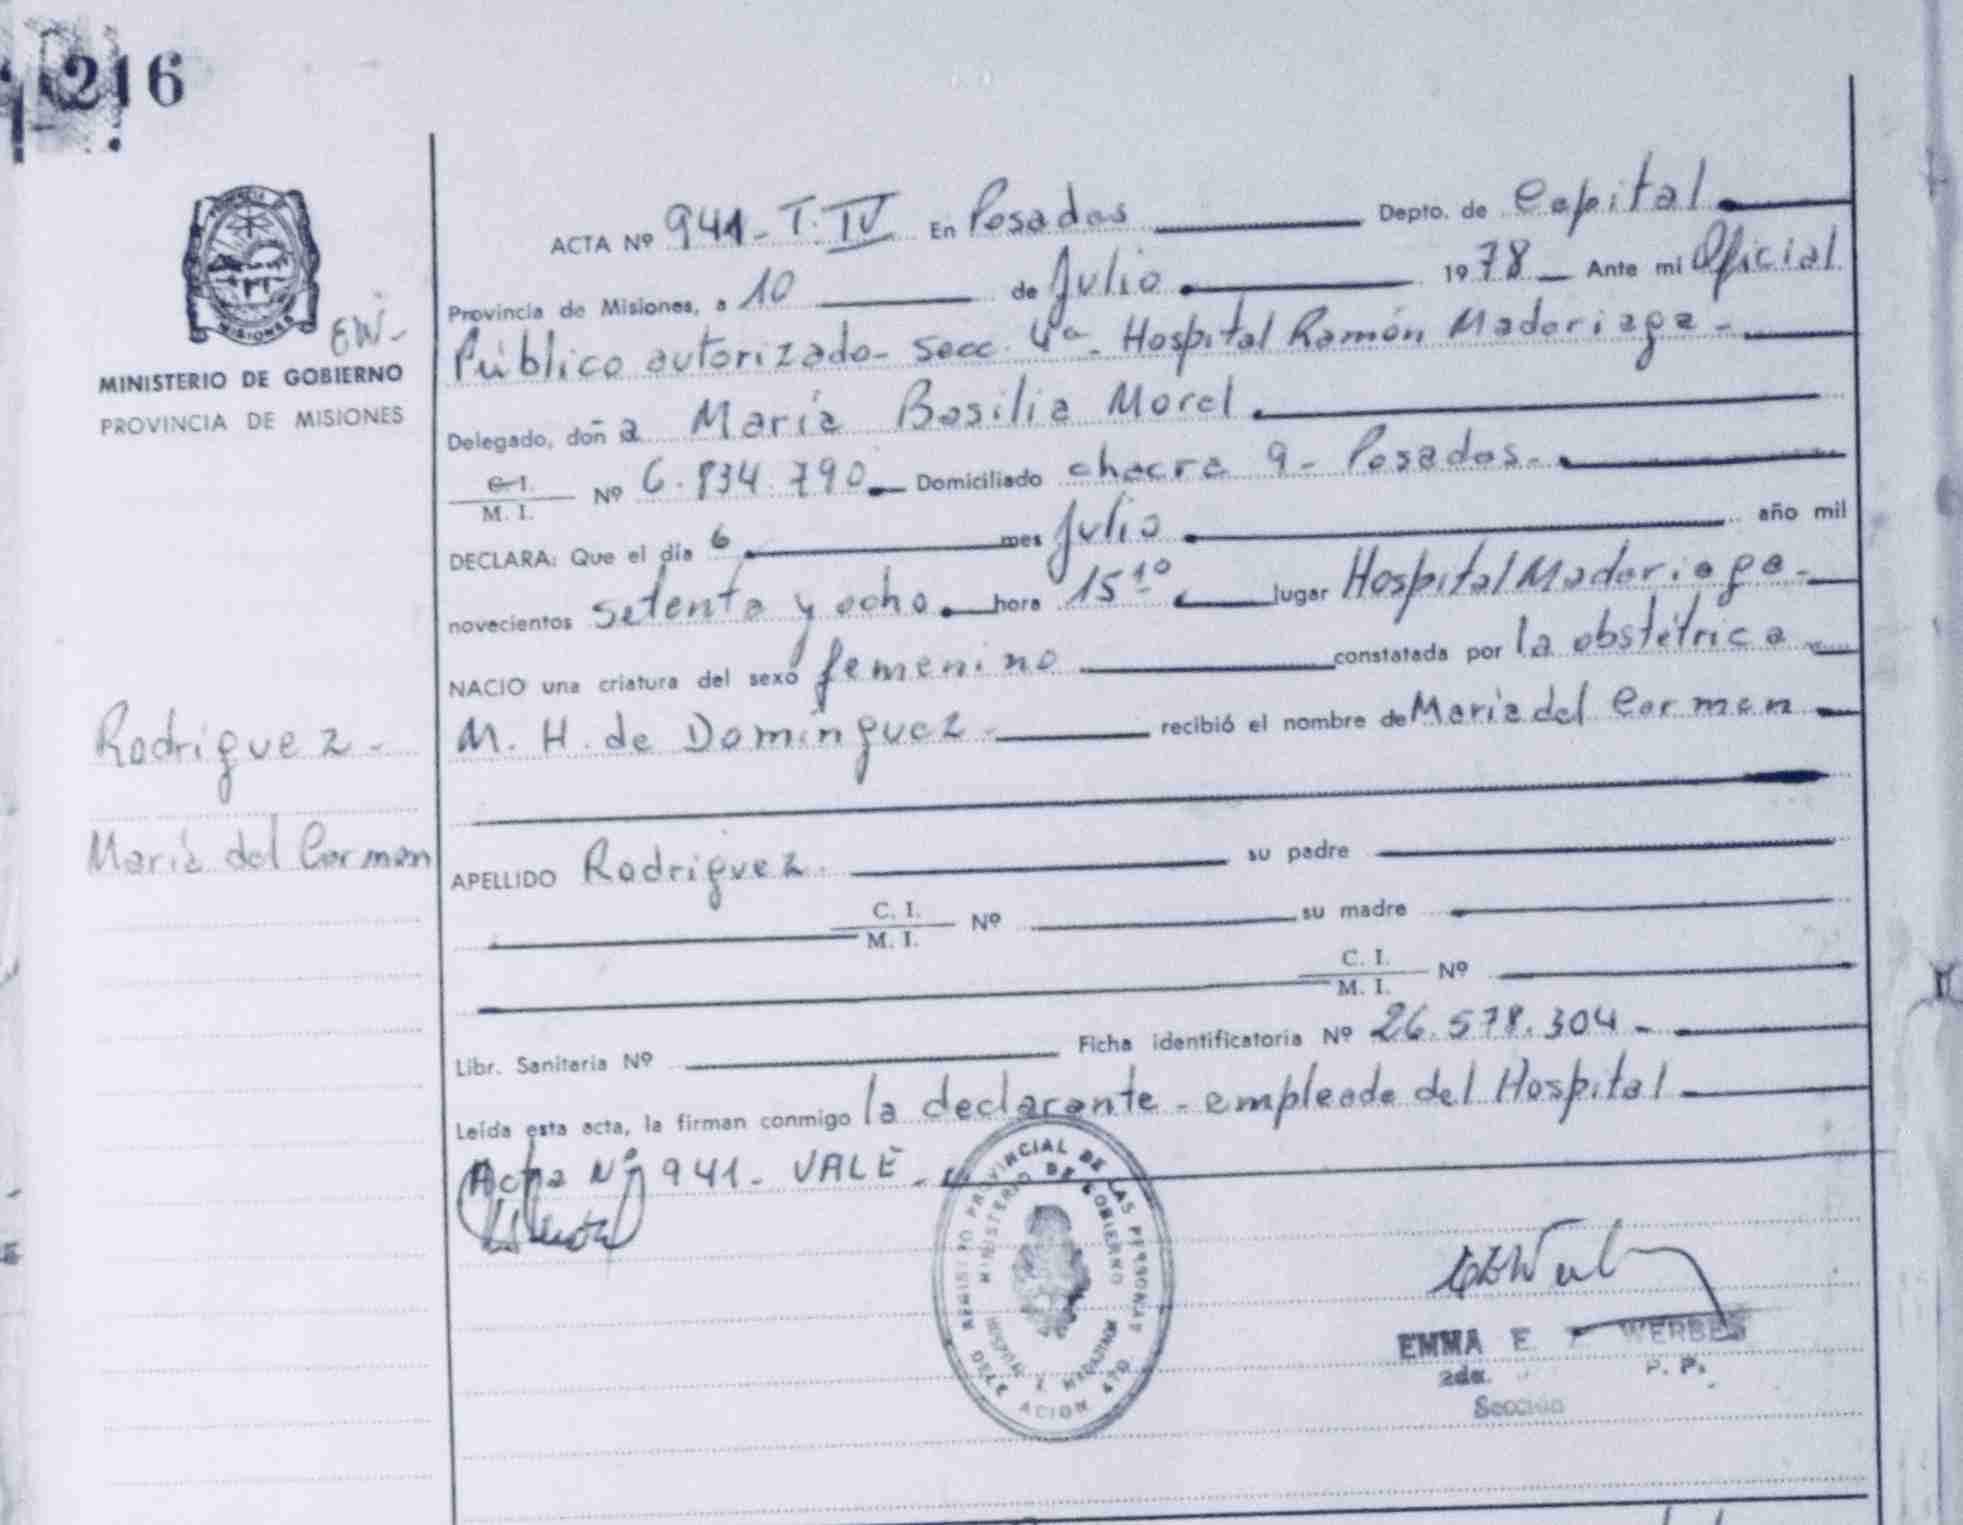 216
PROVINCIA
MISIONES
EW-
MINISTERIO DE GOBIERNO
PROVINCIA DE MISIONES
ACTA Nº 941 - T. IV En Posadas Depto. de Capital
Provincia de Misiones, a 10 de Julio 1978 Ante mi Oficial
Público autorizado - secc. 4ª - Hospital Ramón Madariaga -
Delegado, doña María Basilia Morel
C. I.
M. I. Nº 6.834.790 Domiciliado chacra 9 - Posadas -
DECLARA: Que el día 6 mes Julio año mil
novecientos setenta y ocho hora 15 10 lugar Hospital Madariaga -
NACIO una criatura del sexo femenino constatada por la obstétrica
M. H. de Domínguez - recibió el nombre de María del Carmen
Rodríguez -
María del Carmen
APELLIDO Rodríguez su padre
C. I.
M. I. Nº su madre
C. I.
M. I. Nº
Libr. Sanitaria Nº Ficha identificatoria Nº 26.578.304 -
Leída esta acta, la firman conmigo la declarante - empleada del Hospital
Acta Nº 941 - VALE -
REGISTRO PROVINCIAL DE LAS PERSONAS
MINISTERIO DE GOBIERNO
EMMA E. WERBES
2da. P. P.
Sección